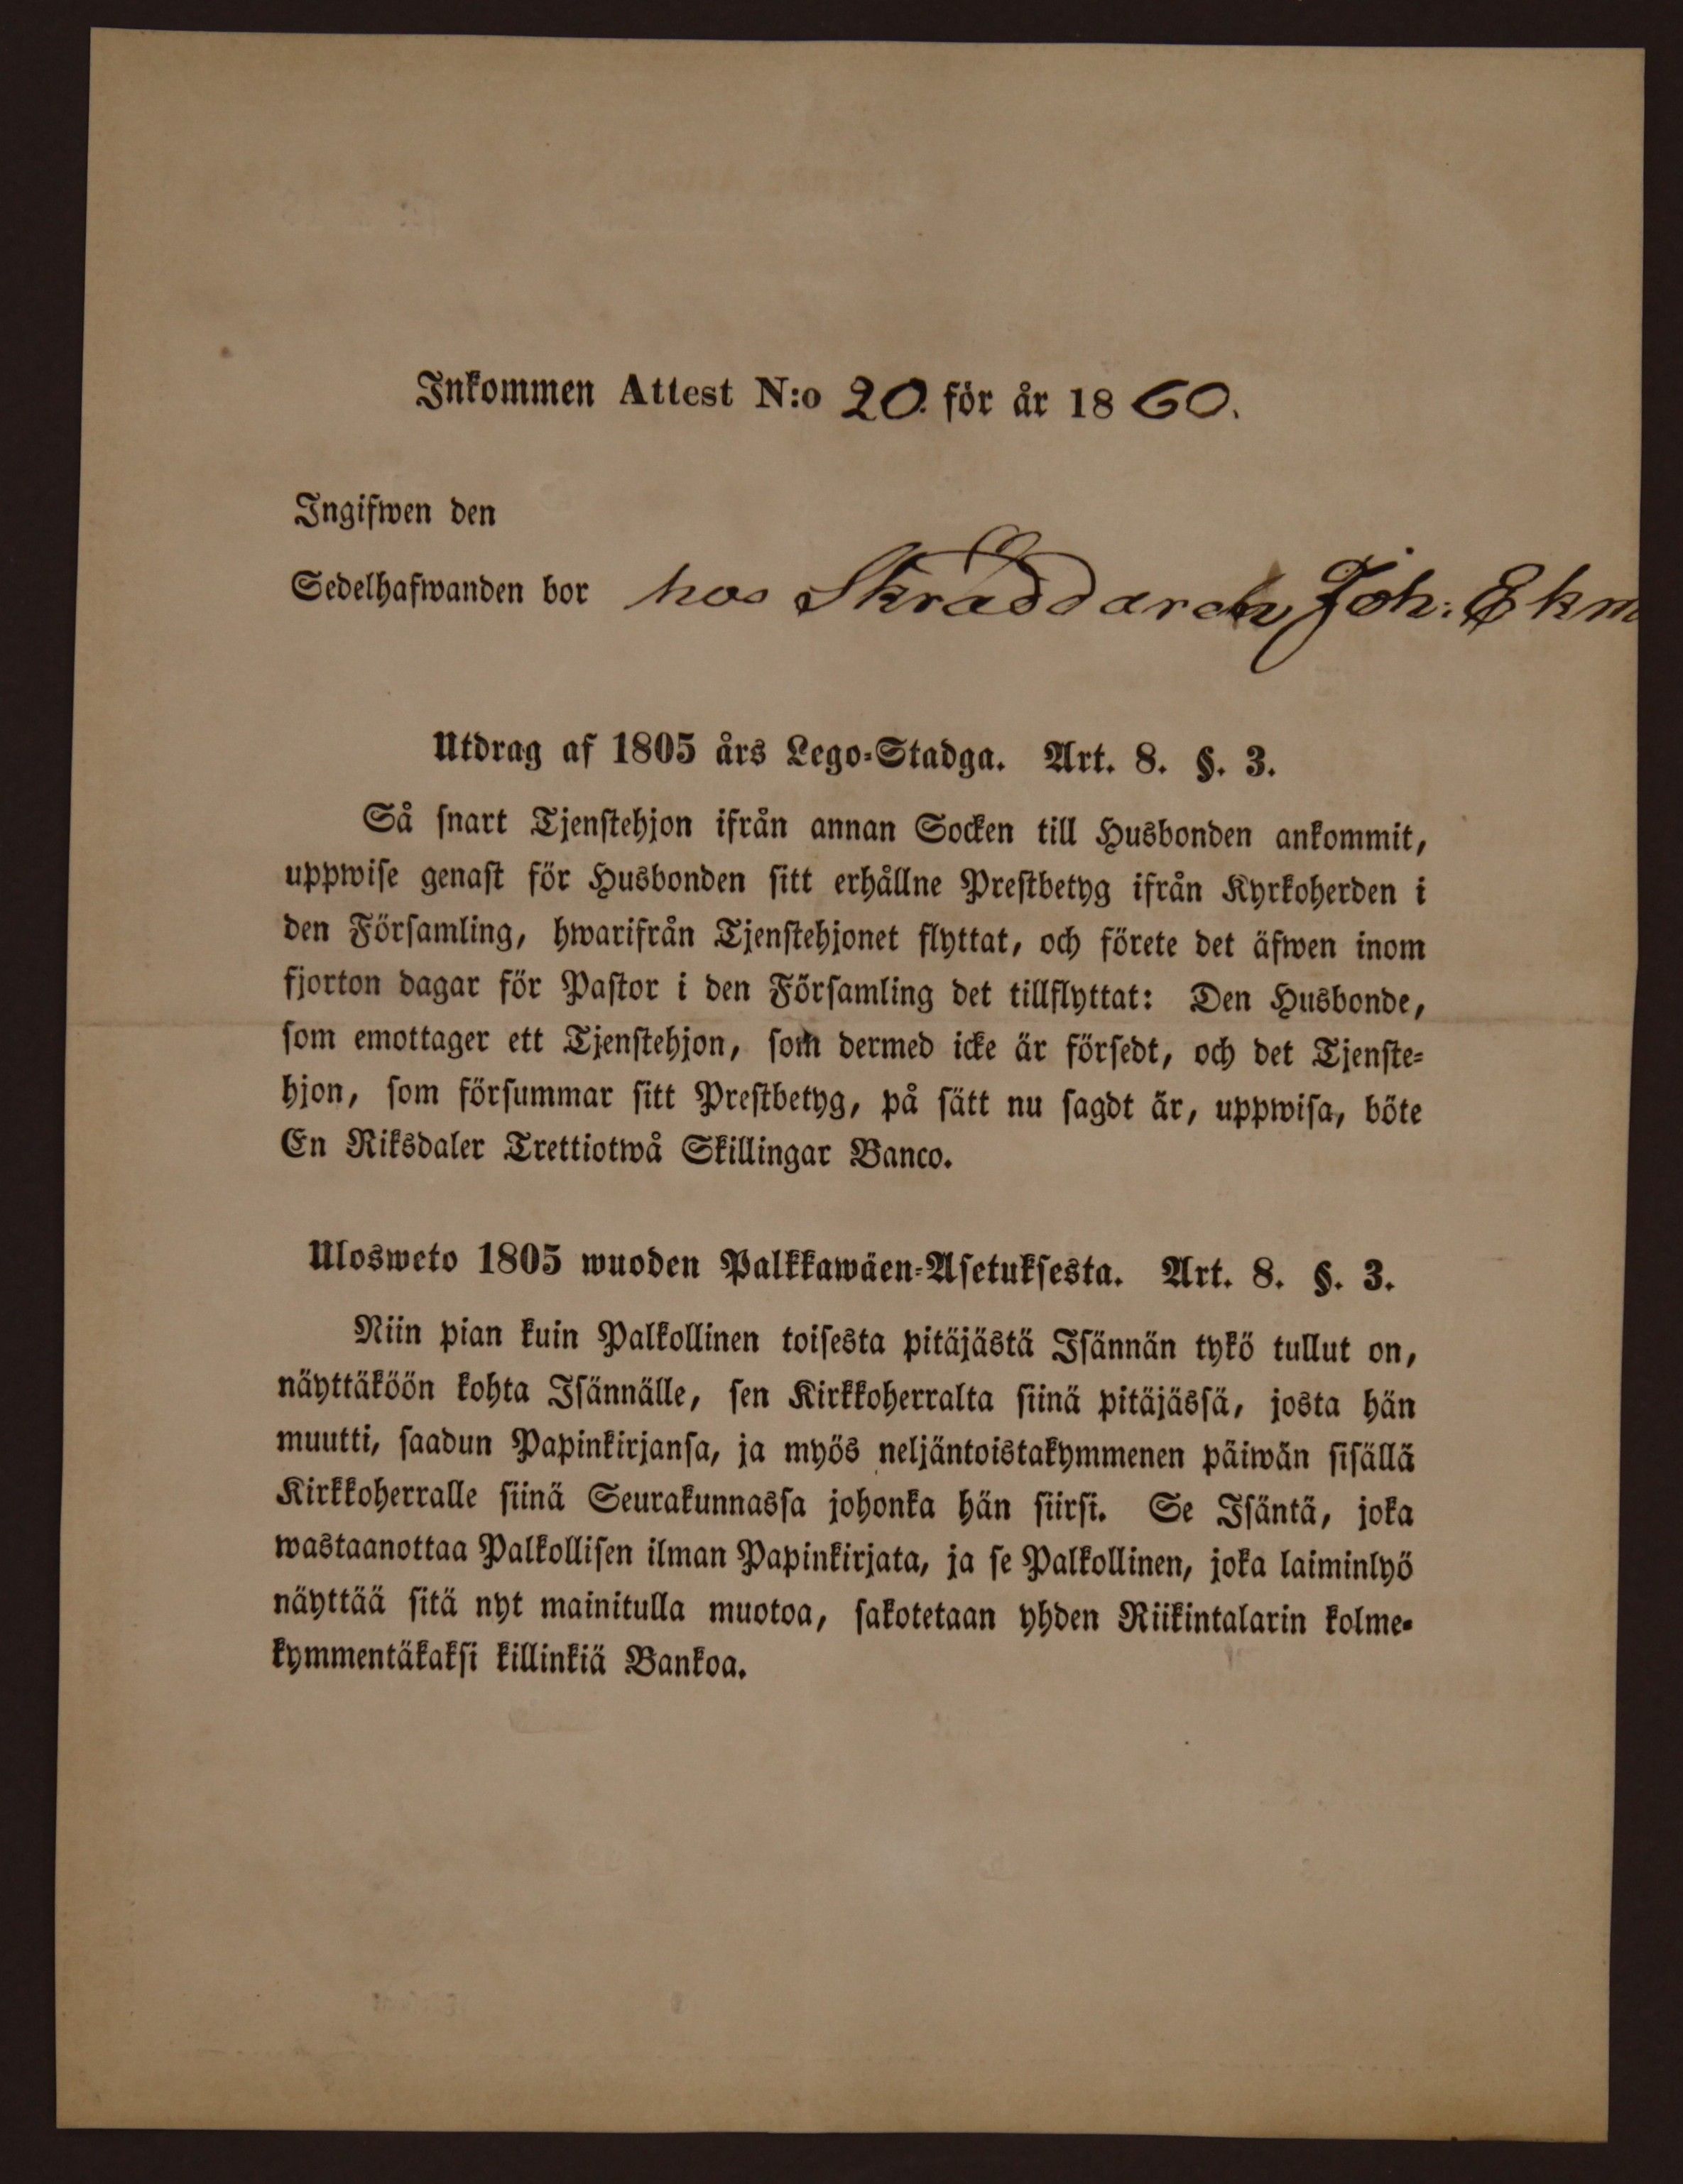 Inkommen Attest N:o 20. för år 1860.
Ingifwen den
Sedelhafwanden bor hos Skräddaren Joh: Ekm
Utdrag af 1805 års Lego-Stadga. Art. 8. §. 3.
Så snart Tjenstehjon ifrån annan Socken till Husbonden ankommit,
uppwise genast för Husbonden sitt erhållne Prestbetyg ifrån Kyrkoherden i
den Församling, hwarifrån Tjenstehjonet flyttat, och förete det äfwen inom
fjorton dagar för Pastor i den Församling det tillflyttat: Den Husbonde,
som emottager ett Tjenstehjon, som dermed icke är försedt, och det Tjenste-
hjon, som försummar sitt Prestbetyg, på sätt nu sagdt är, uppwisa, böte
En Riksdaler Trettiotwå Skillingar Banco.
Ulosweto 1805 wuoden Palkkawäen-Asetuksesta. Art. 8. §. 3.
Niin pian kuin Palkollinen toisesta pitäjästä Isännän tykö tullut on,
näyttäköön kohta Isännälle, sen Kirkkoherralta siinä pitäjässä, josta hän
muutti, saadun Papinkirjansa, ja myös neljäntoistakymmenen päiwän sisällä
Kirkkoherralle siinä Seurakunnassa johonka hän siirsi. Se Isäntä, joka
wastaanottaa Palkollisen ilman Papinkirjata, ja se Palkollinen, joka laiminlyö
näyttää sitä nyt mainitulla muotoa, sakotetaan yhden Riikintalarin kolme-
kymmentäkaksi killinkiä Bankoa.